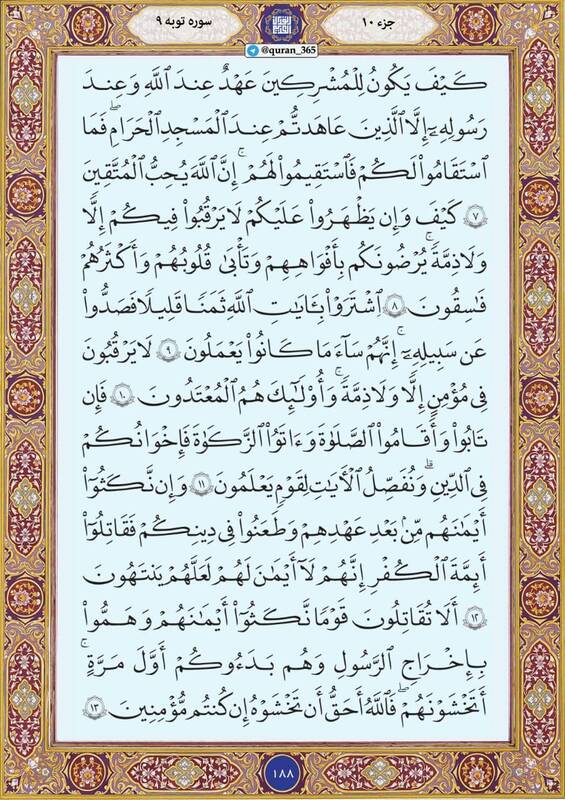 سوره توبه ۹
جزء ۱۰
@quran_365
كَيْفَ يَكُونُ لِلْمُشْرِكِينَ عَهْدٌ عِندَ اللَّهِ وَعِندَ
رَسُولِهِۦٓ إِلَّا الَّذِينَ عَاهَدتُّمْ عِندَ الْمَسْجِدِ الْحَرَامِۖ فَمَا
اسْتَقَامُوا۟ لَكُمْ فَاسْتَقِيمُوا۟ لَهُمْۚ إِنَّ اللَّهَ يُحِبُّ الْمُتَّقِينَ
۷ كَيْفَ وَإِن يَظْهَرُوا۟ عَلَيْكُمْ لَا يَرْقُبُوا۟ فِيكُمْ إِلًّا
وَلَا ذِمَّةًۚ يُرْضُونَكُم بِأَفْوَاهِهِمْ وَتَأْبَىٰ قُلُوبُهُمْ وَأَكْثَرُهُمْ
فَاسِقُونَ ۸ اشْتَرَوْا۟ بِـَٔايَاتِ اللَّهِ ثَمَنًا قَلِيلًا فَصَدُّوا۟
عَن سَبِيلِهِۦٓۚ إِنَّهُمْ سَآءَ مَا كَانُوا۟ يَعْمَلُونَ ۹ لَا يَرْقُبُونَ
فِى مُؤْمِنٍ إِلًّا وَلَا ذِمَّةًۚ وَأُو۟لَٰٓئِكَ هُمُ الْمُعْتَدُونَ ۱۰ فَإِن
تَابُوا۟ وَأَقَامُوا۟ الصَّلَوٰةَ وَءَاتَوُا۟ الزَّكَوٰةَ فَإِخْوَانُكُمْ
فِى الدِّينِۗ وَنُفَصِّلُ الْأَيَاتِ لِقَوْمٍ يَعْلَمُونَ ۱۱ وَإِن نَّكَثُوٓا۟
أَيْمَٰنَهُم مِّنۢ بَعْدِ عَهْدِهِمْ وَطَعَنُوا۟ فِى دِينِكُمْ فَقَاتِلُوٓا۟
أَئِمَّةَ الْكُفْرِۙ إِنَّهُمْ لَآ أَيْمَٰنَ لَهُمْ لَعَلَّهُمْ يَنتَهُونَ
۱۲ أَلَا تُقَاتِلُونَ قَوْمًا نَّكَثُوٓا۟ أَيْمَٰنَهُمْ وَهَمُّوا۟
بِإِخْرَاجِ الرَّسُولِ وَهُم بَدَءُوكُمْ أَوَّلَ مَرَّةٍۚ
أَتَخْشَوْنَهُمْۚ فَاللَّهُ أَحَقُّ أَن تَخْشَوْهُ إِن كُنتُم مُّؤْمِنِينَ ۱۳
۱۸۸